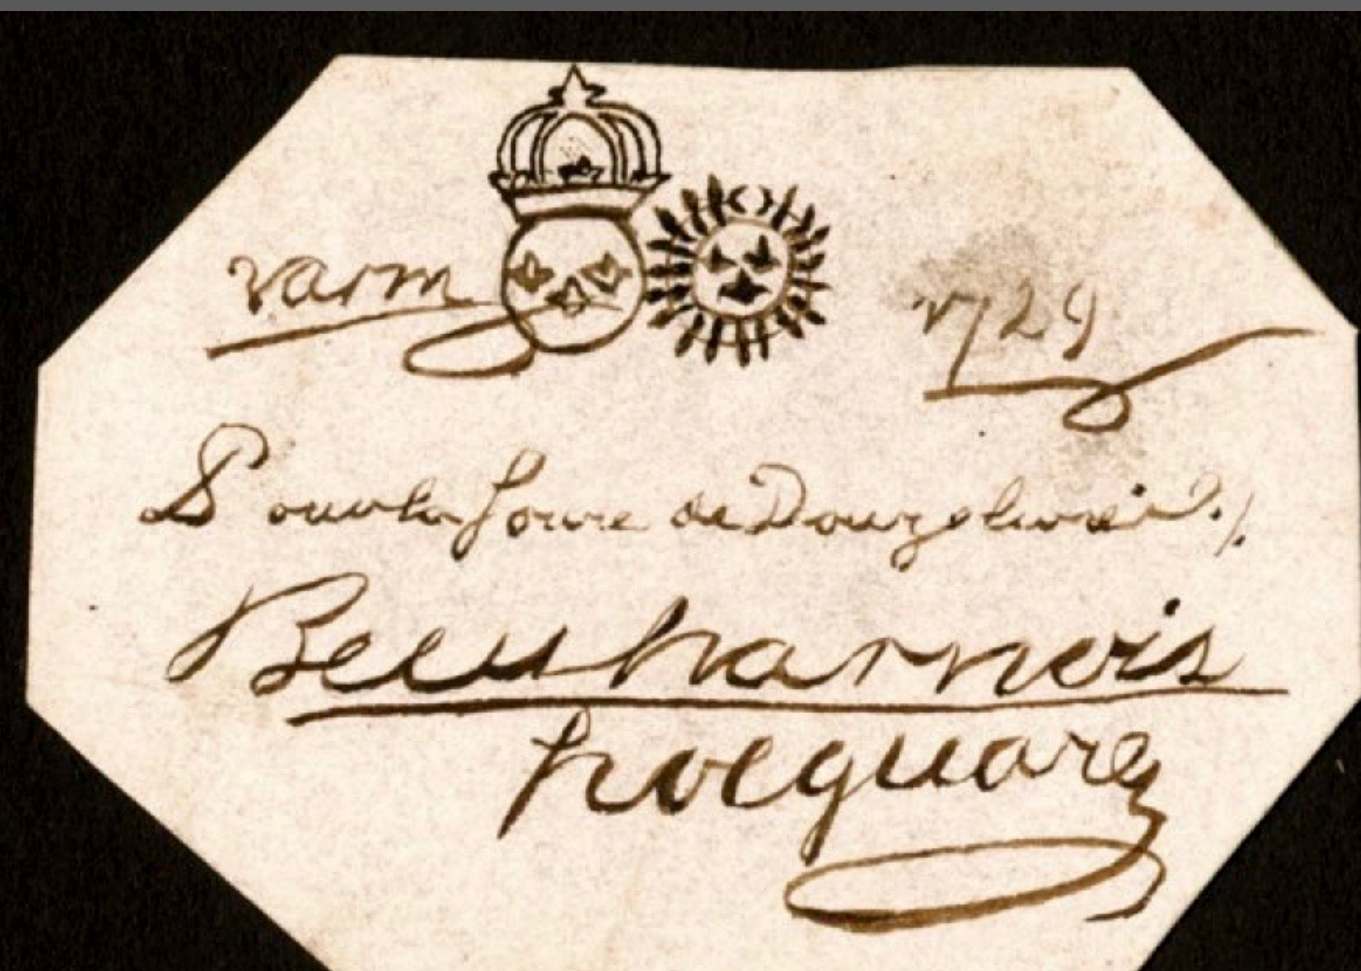 varin 1729
Pour la somme de Douze livres ./.
Beauharnois
hocquart